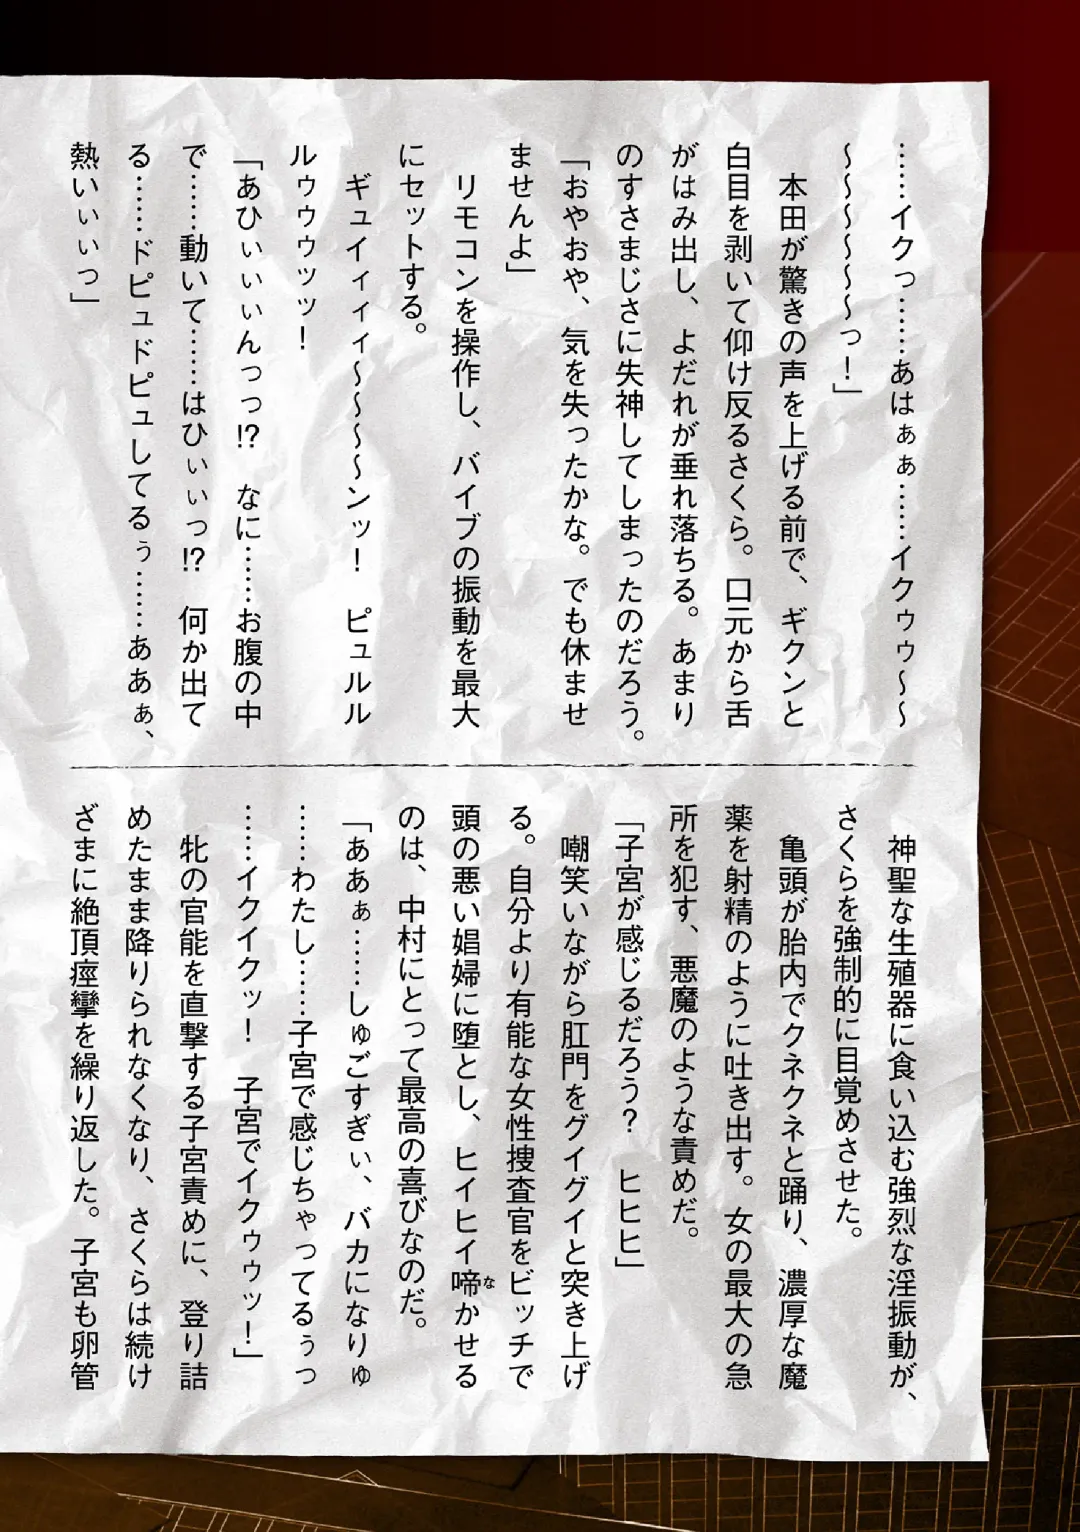 ……イクっ……あはぁぁ……イクゥゥ～～
～～～～～～っ！」
本田が驚きの声を上げる前で、ギクンと
白目を剥いて仰け反るさくら。口元から舌
がはみ出し、よだれが垂れ落ちる。あまり
のすさまじさに失神してしまったのだろう。
「おやおや、気を失ったかな。でも休ませ
ませんよ」
リモコンを操作し、バイブの振動を最大
にセットする。
ギュイィィィ～～～～ンッ！　ピュルル
ルゥゥゥッッ！
「あひぃぃぃんっっ!?　なに……お腹の中
で……動いて……はひぃぃっ!?　何か出て
る……ドピュドピュしてるぅ……ああぁ、
熱いぃぃっ」
神聖な生殖器に食い込む強烈な淫振動が、
さくらを強制的に目覚めさせた。
亀頭が胎内でクネクネと踊り、濃厚な魔
薬を射精のように吐き出す。女の最大の急
所を犯す、悪魔のような責めだ。
「子宮が感じるだろう？　ヒヒヒ」
嘲笑いながら肛門をグイグイと突き上げ
る。自分より有能な女性捜査官をビッチで
頭の悪い娼婦に堕とし、ヒイヒイ啼かせる
な
のは、中村にとって最高の喜びなのだ。
「ああぁ……しゅごすぎぃ、バカになりゅ
……わたし……子宮で感じちゃってるぅっ
……イクイクッ！　子宮でイクゥゥッ！」
牝の官能を直撃する子宮責めに、登り詰
めたまま降りられなくなり、さくらは続け
ざまに絶頂痙攣を繰り返した。子宮も卵管